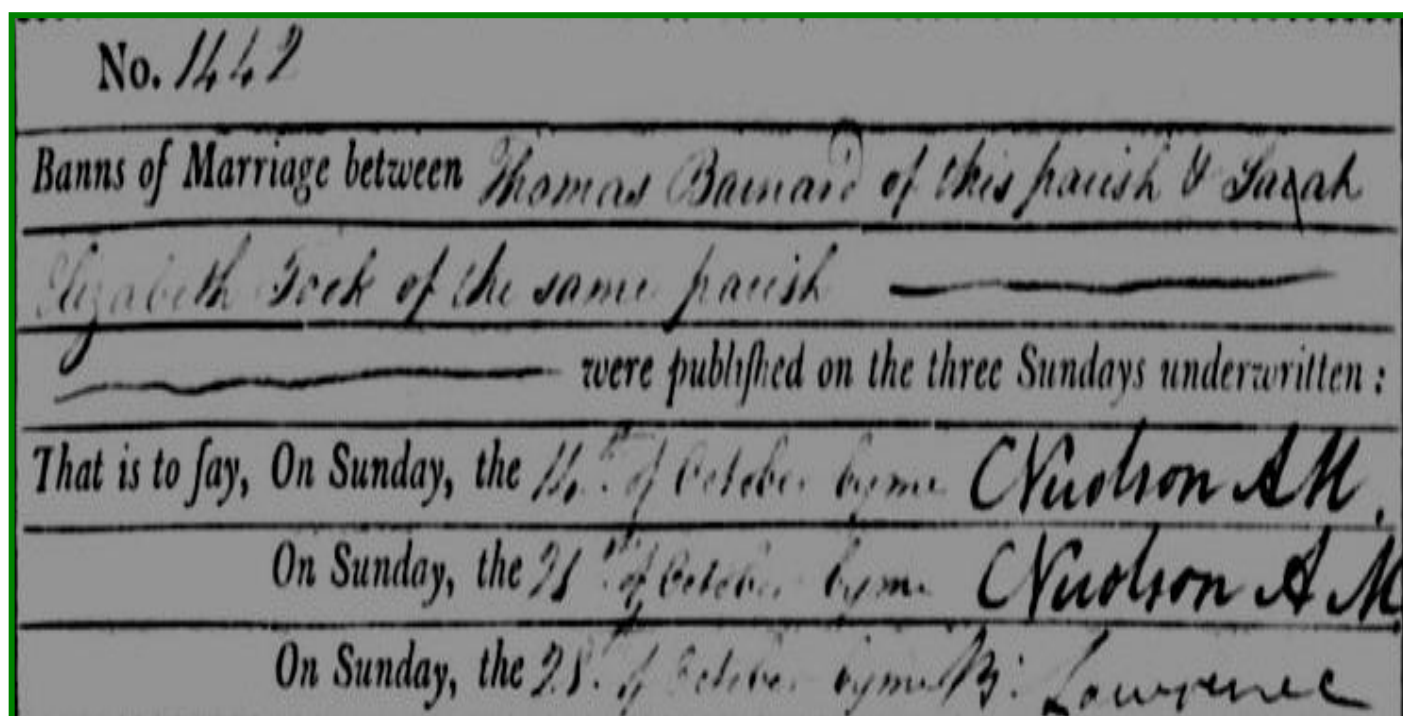 No. 1442
Banns of Marriage between Thomas Barnard of this parish & Sarah
Elizabeth Tock of the same parish
were publiſhed on the three Sundays underwritten :
That is to ſay, On Sunday, the 14th of October by me
On Sunday, the 21st of October by me
On Sunday, the 28. of October by me B: Lawrence